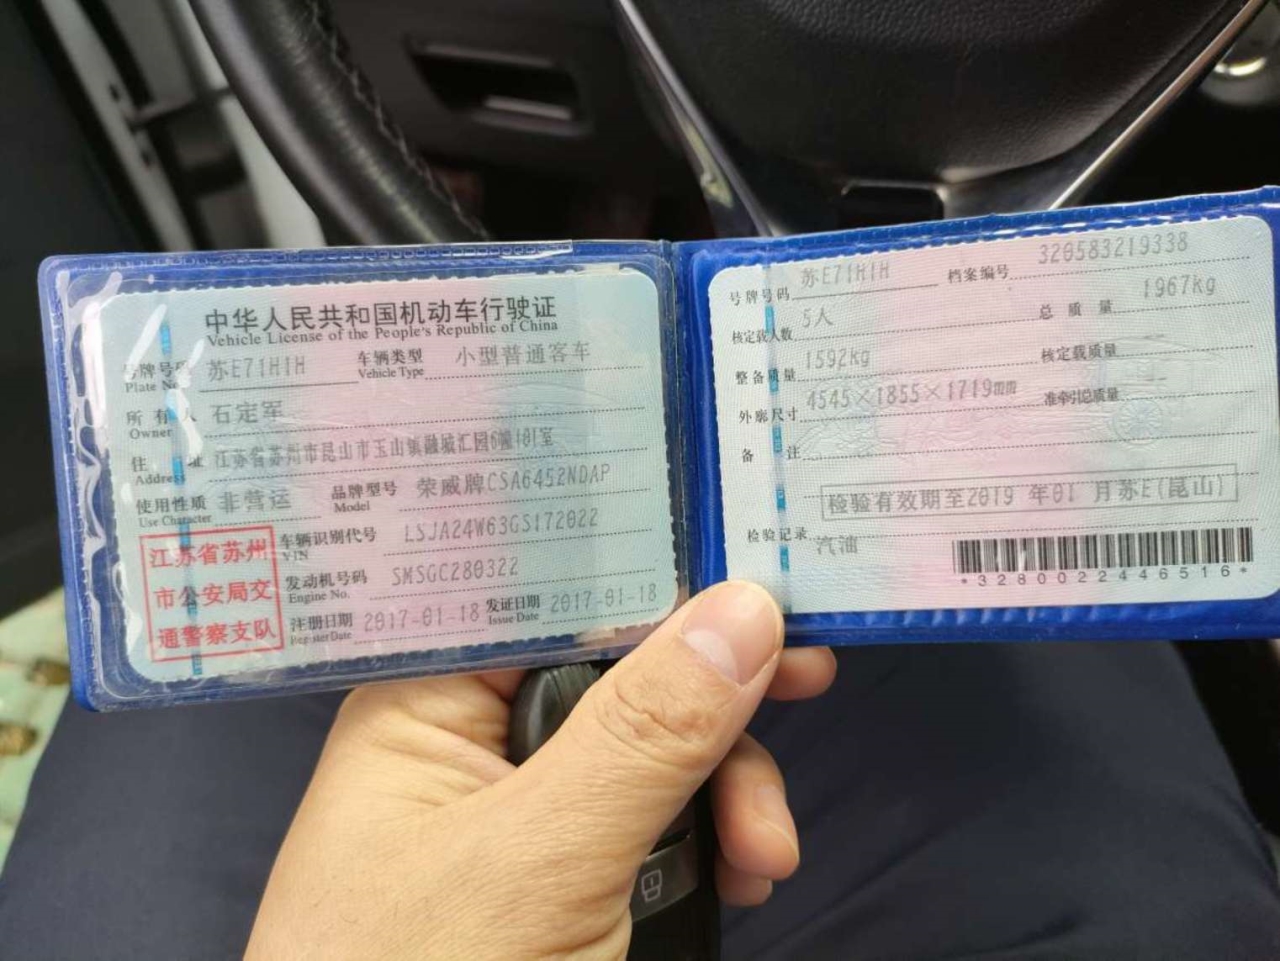 中华人民共和国机动车行驶证
Vehicle License of the People's Republic of China
号牌号码 苏E71H1H 车辆类型 小型普通客车
Plate No. Vehicle Type
所有人 石定军
Owner
住址 江苏省苏州市昆山市玉山镇融城汇园6幢181室
Address
使用性质 非营运 品牌型号 荣威牌CSA6452NDAP
Use Character Model
车辆识别代号 LSJA24W63GS172022
VIN
发动机号码 SMSGC280322
Engine No.
注册日期 2017-01-18 发证日期 2017-01-18
Register Date Issue Date
江苏省苏州
市公安局交
通警察支队
号牌号码 苏E71H1H 档案编号 320583219338
核定载人数 5人 总质量 1967kg
整备质量 1592kg 核定载质量 --
外廓尺寸 4545×1855×1719mm 准牵引总质量 --
备注
检验有效期至2019年01月苏E(昆山)
检验记录 汽油
*3280022446516*